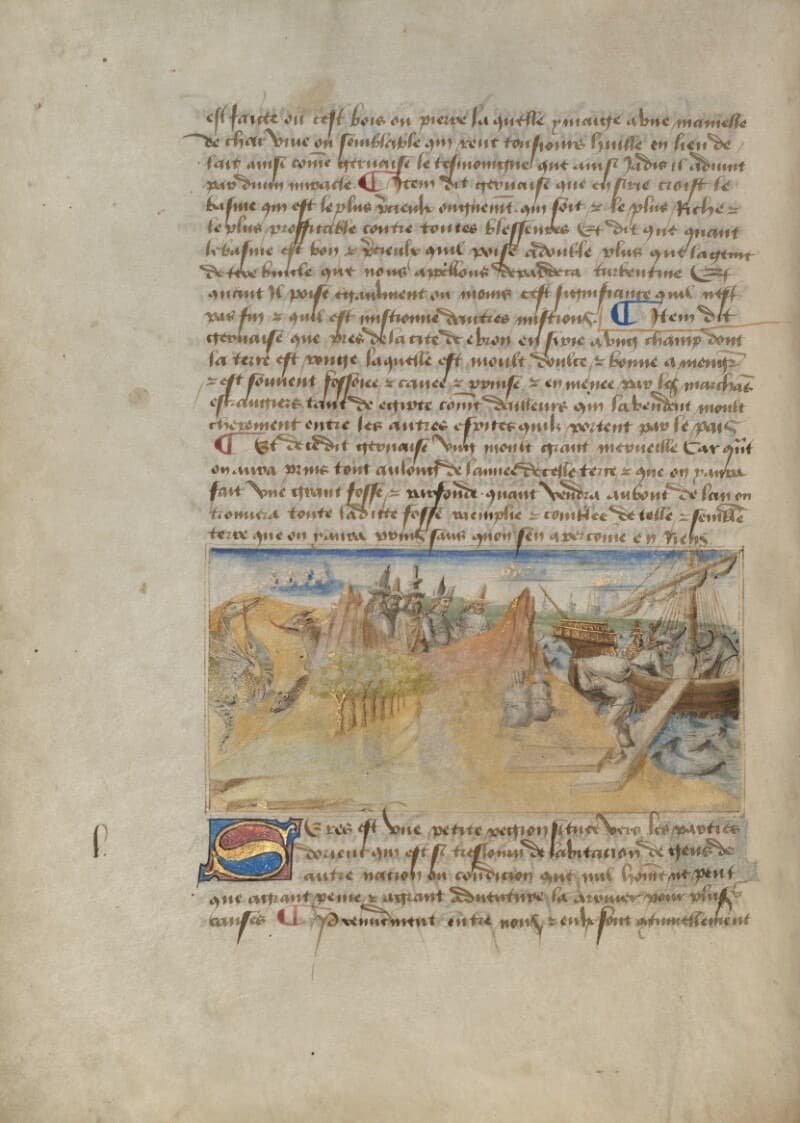 est faicte ou cest bois ou pierre laquelle ymaige a une mamelle
de char vive ou semblable qui rent tousiours huille en lieu de
lait ainsi come gervaise le tesmoingne que ainsi jadis il advint
par divin miracle. ¶ Item dit gervaise que en sirie croist le
basme qui est le plus onguement qui soit et le plus riche et
le plus prouffitable contre toutes blesseures Et dit que quant
le basme est bon et quil poise a double plus que
de que nous apellons turbentine Et
quant il poise egaulment ou moins cest signifiance quil nest
pas fin et quil est mistionne dautres mistions. ¶ Item dit
gervaise que pres de la cite de ebron en sirie a ung champ dont
la terre est rouge laquelle est moult doulce et bonne a menger
et est souvent fossoiee et cavee et prinse et en menee par les marchans
estrangiers tant de egipte come dailleurs qui la vendent moult
chierement entre les autres espices quilz portent par le pais
¶ Et de ce dit gervaise ung moult grant merveille Car qant
on aura prins tout au long de lannee de celle terre et que on y aura
fait une grant fosse et parfonde quant vendra au bout de lan on
trouvera toute laditte fosse remplie et comblee de telle et semblable
terre que on y aura prins sans quon sen apercoive en riens
Seres est une petite region situee vers les parties
dorient qui est si tresloing de labitacion de gens de
autre nation ou condition que nul home ne peut
que a grant peine et a grant adventure la arriver pour plusrs
causes ¶ Premierement entre nous et eulx sont